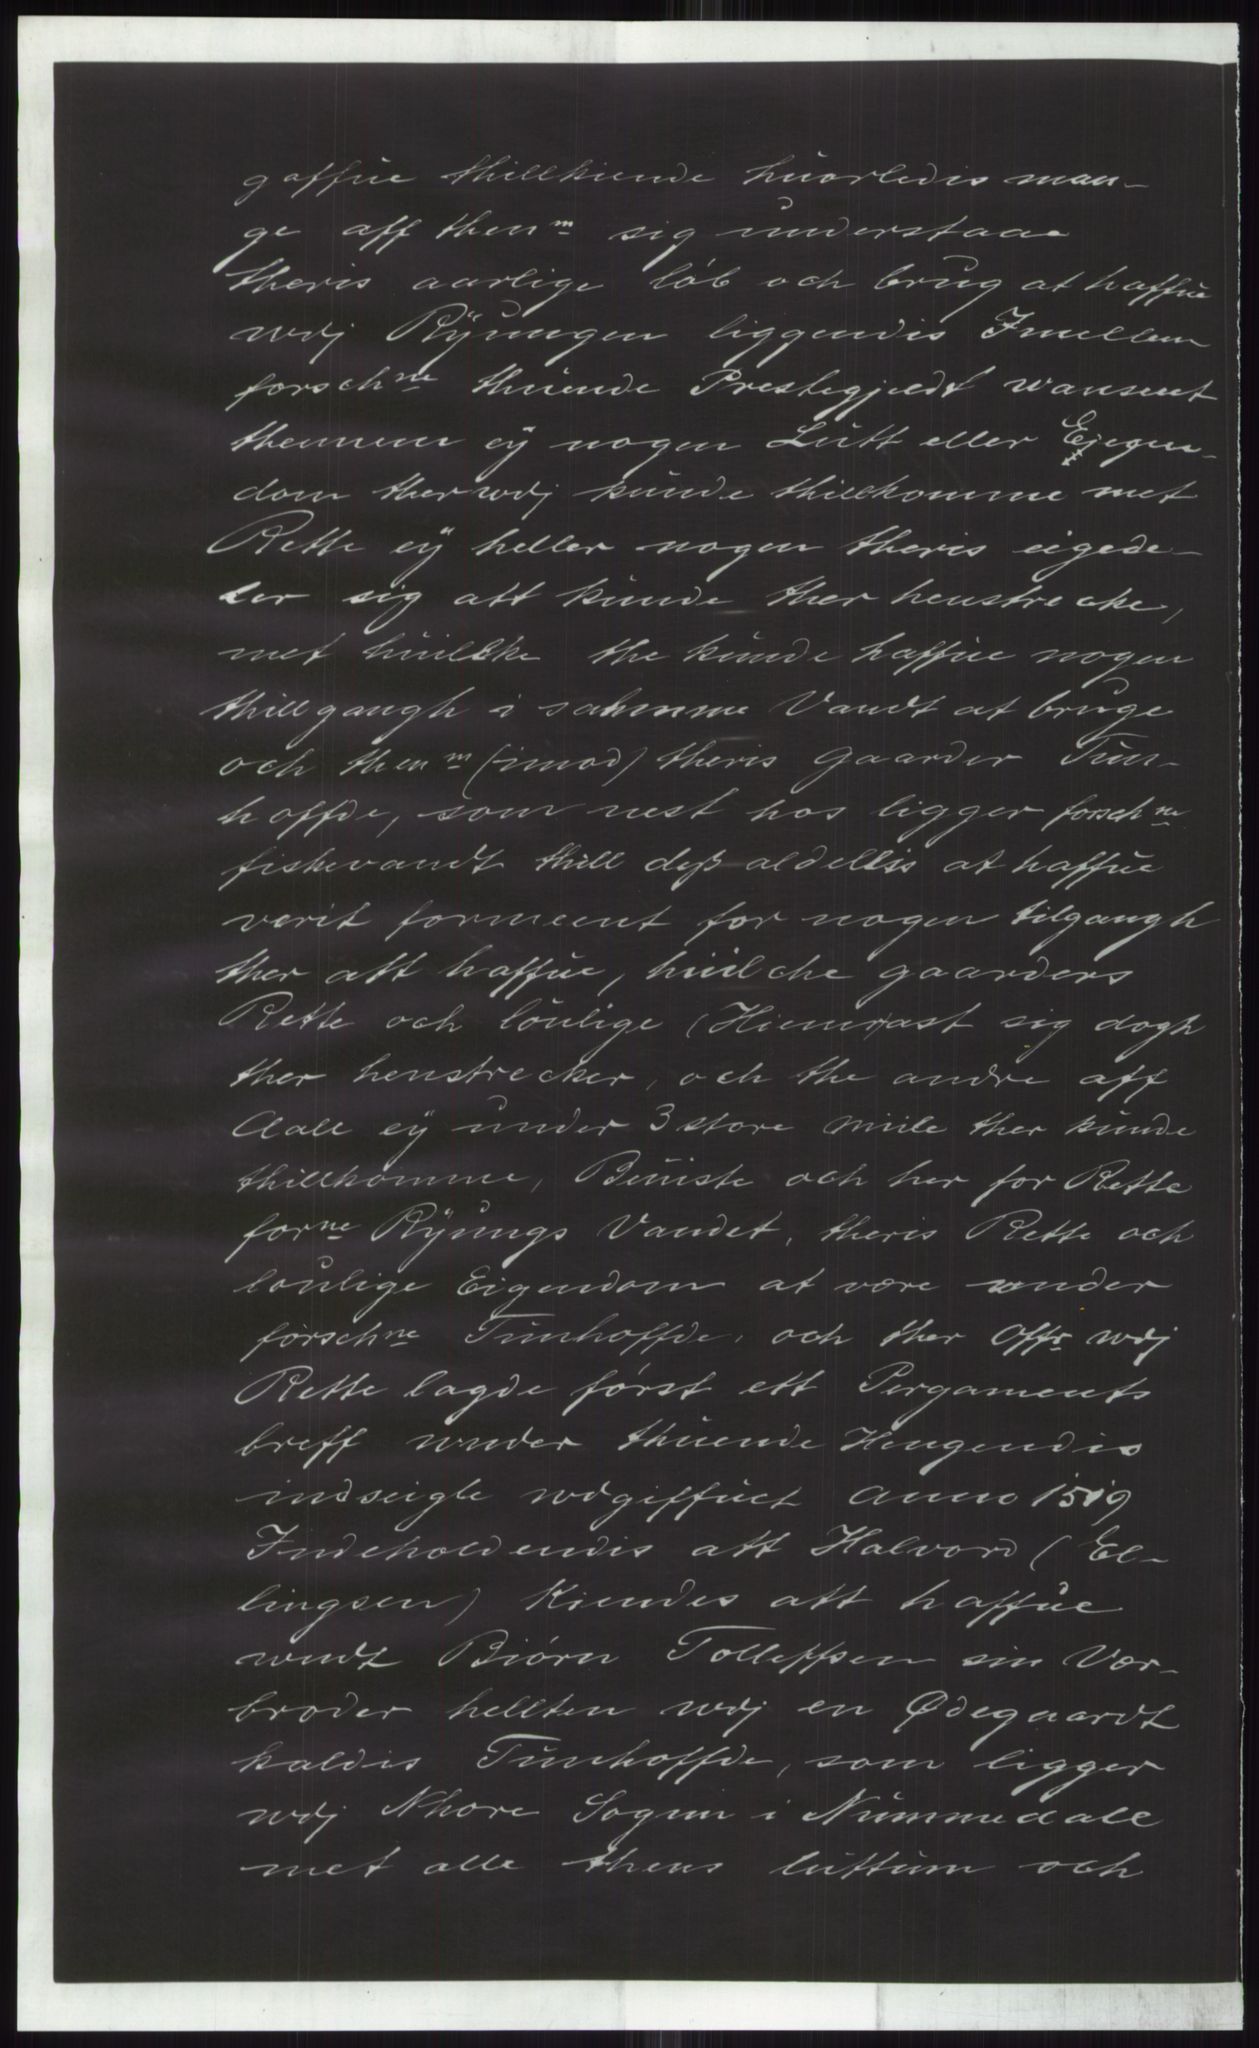 gaffue thillkiende huorledis man-
ge aff thenm sig understaae
theris aarlige løb och brug at haffue
wdj Ryungen liggendis Imellem
forschne thuende Prestegjeldt wanseet
thennem eÿ nogen Lutt eller Ejegen-
dom ther wdj kunde thillkomme met
Rette eÿ heller nogen theris eigede-
ler sig att kunde ther henstrecke,
met huilke the kunde haffue nogen
thillgangh i sahmme Vandt at bruge
och thenm (imod) theris gaarder Tun-
hoffde, som nest hos ligger forschne
fiskevandt thill deß aldellis at haffue
verit formeent for nogen tilgangh
ther att haffue, huilche gaarders
Rette och loulige (Hiemrast sig dogh
ther henstrecker, och the andre aff
Aale eÿ under 3 store miile ther kunde
thillkomme, Beuiste och her for Rette
forne Rÿungs Vandet, theris Rette och
loulige Eigendom at være under
forschne Tunhoffde, och ther offr wdj
Rette lagde først ett Pergaments
breff under thuende Hengendis
indseigle wdgiffuet Anno 1519
Indeholdendis att Halvord (El-
lingsen) Kiendes att haffue
wndt Biørn Tolleffsen sin Vær-
broder hellten wdj en Ødegaardt
kaldis Tunhoffde, som ligger
wdj Nhore Sogun i Nummedale
met alle thens luttum och